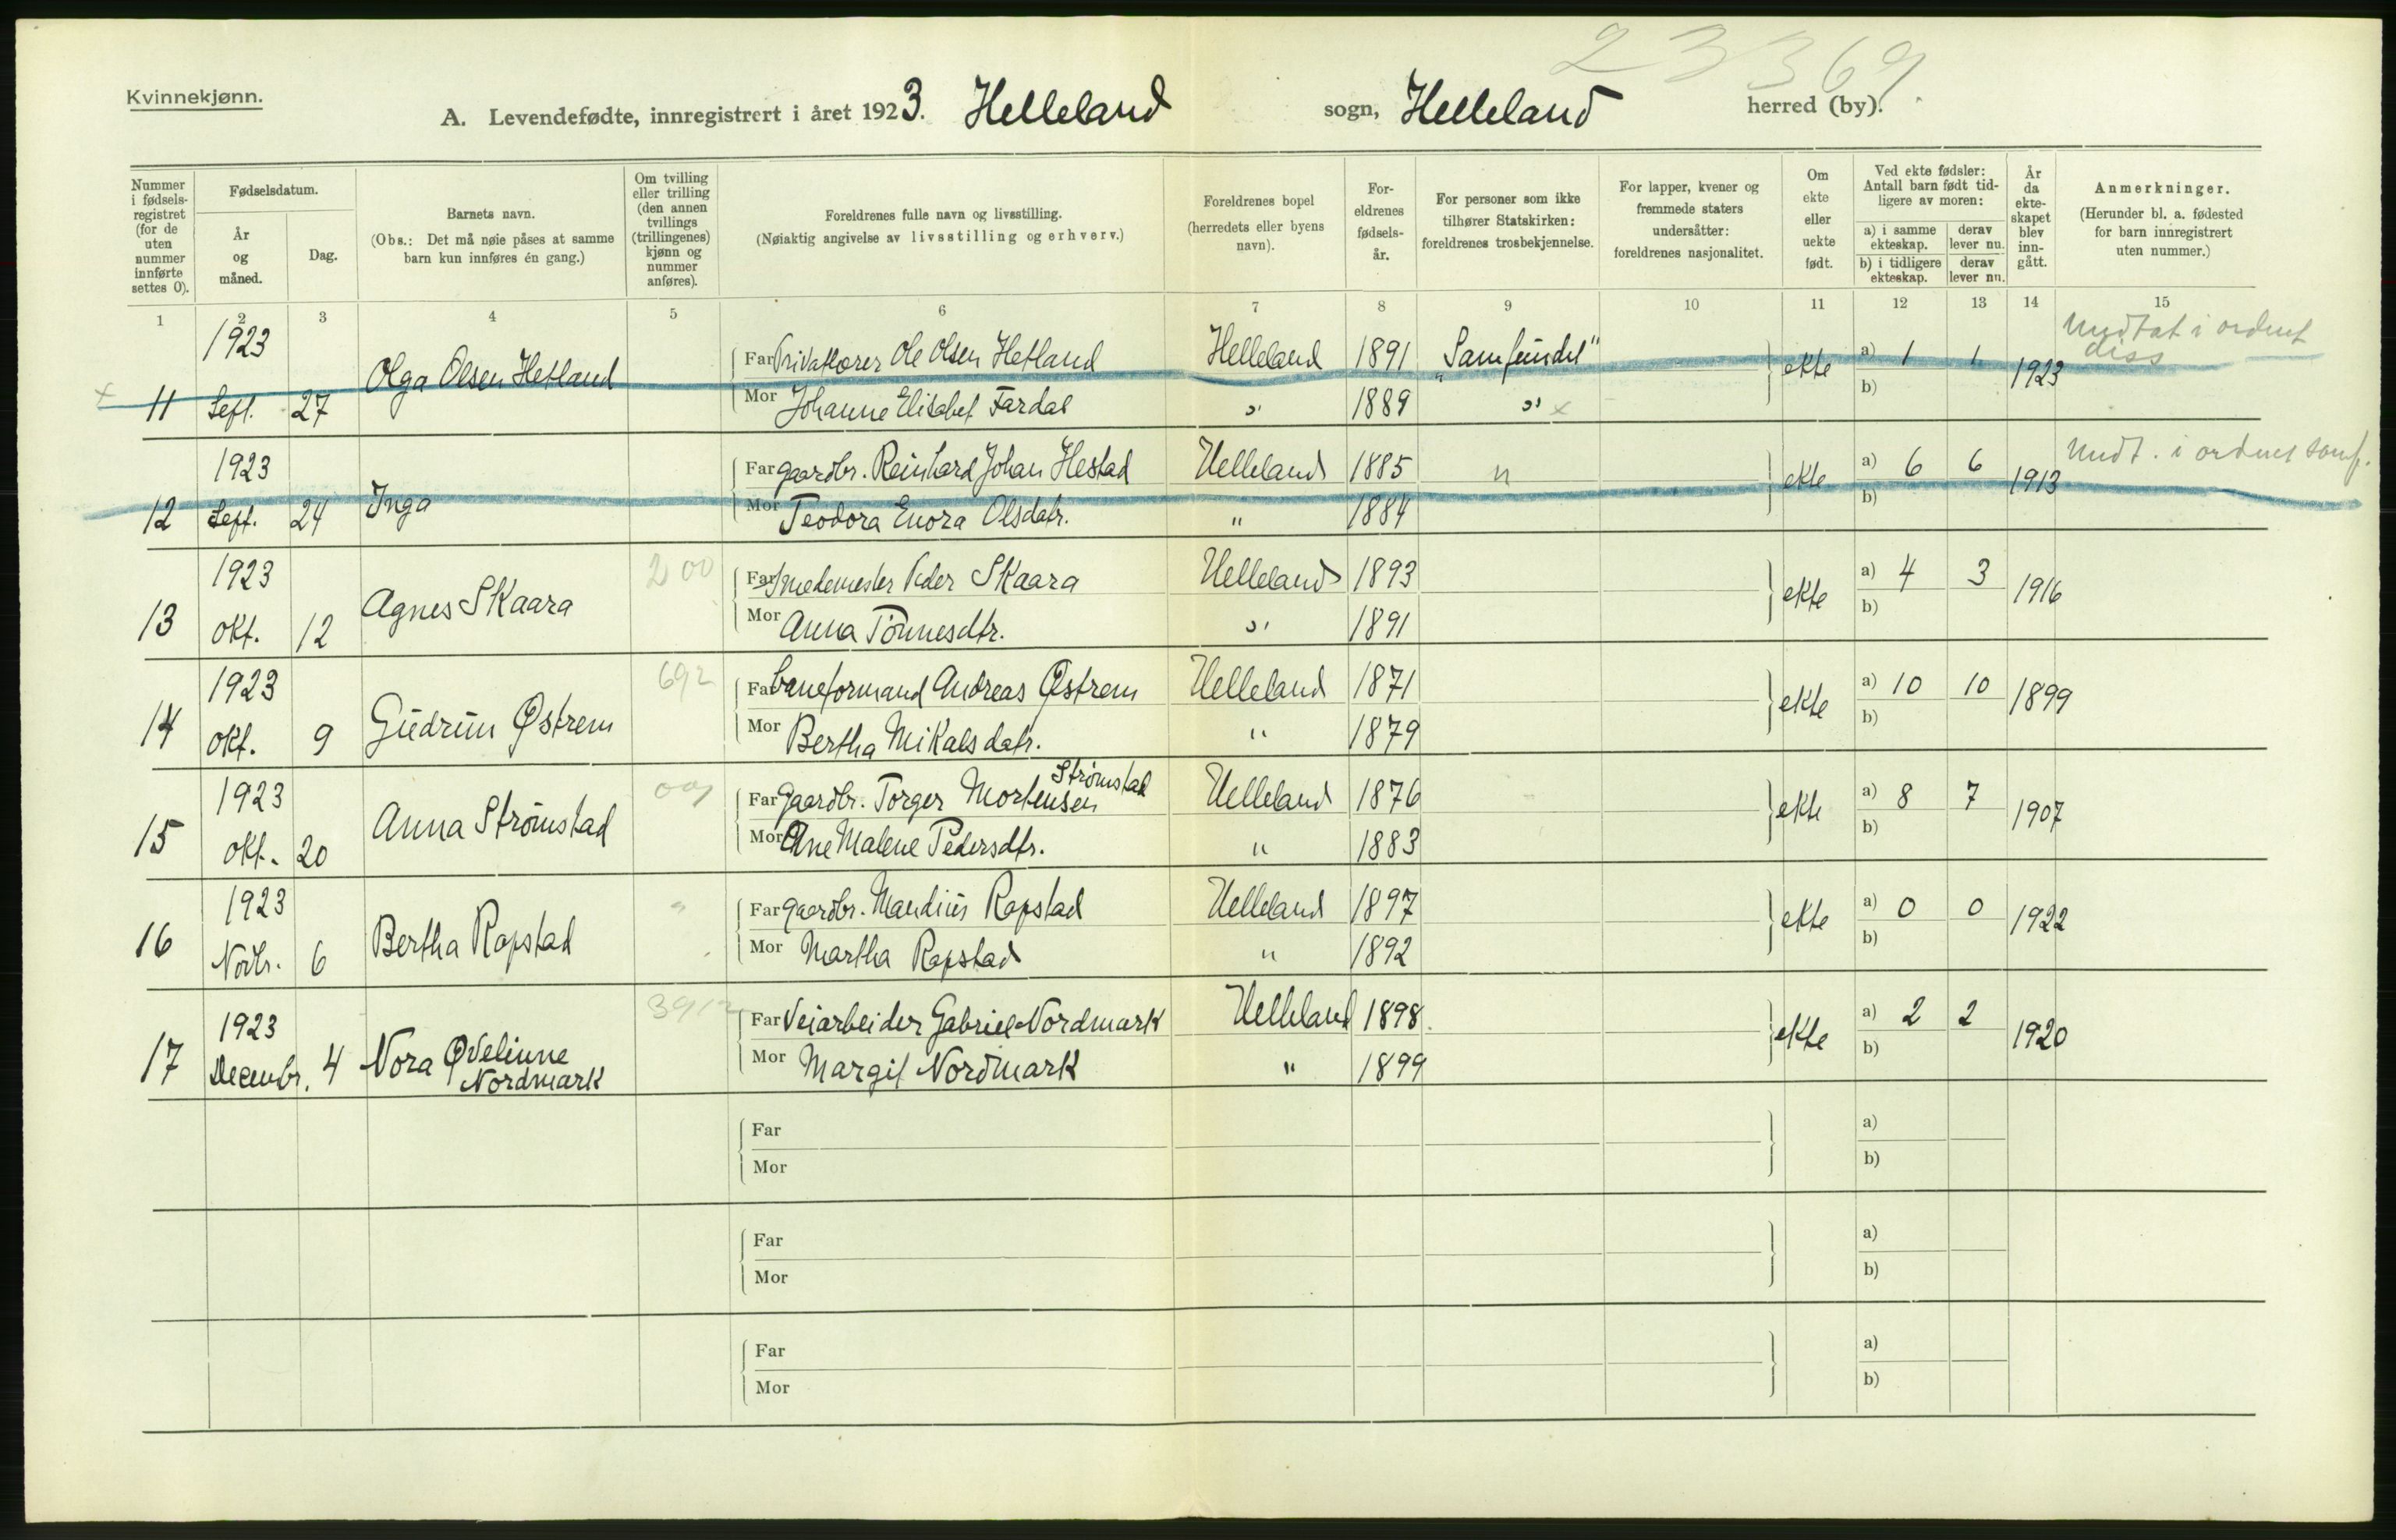 23369
Kvinnekjønn.
A. Levendefødte, innregistrert i året 1923. Helleland sogn, Helleland herred (by).
Nummer i fødsels-registret (for de uten nummer innførte settes 0).
Fødselsdatum.
År og måned.
Dag.
Barnets navn.
(Obs.: Det må nøie påses at samme barn kun innføres én gang.)
Om tvilling eller trilling (den annen tvillings (trillingenes) kjønn og nummer anføres).
Foreldrenes fulle navn og livsstilling.
(Nøiaktig angivelse av livsstilling og erhverv.)
Foreldrenes bopel (herredets eller byens navn).
For-eldrenes fødsels-år.
For personer som ikke tilhører Statskirken: foreldrenes trosbekjennelse.
For lapper, kvener og fremmede staters undersåtter: foreldrenes nasjonalitet.
Om ekte eller uekte født.
Ved ekte fødsler: Antall barn født tid-ligere av moren:
a) i samme ekteskap.
derav lever nu.
b) i tidligere ekteskap.
derav lever nu.
År da ekte-skapet blev inn-gått.
Anmerkninger.
(Herunder bl. a. fødested for barn innregistrert uten nummer.)
1 2 3 4 5 6 7 8 9 10 11 12 13 14 15
x 11 1923 Sept. 27 Olga Olsen Hetland Far Privatlærer Ole Olsen Hetland Helleland 1891 "Samfundet" ekte a) 1 1 1923 Undtat i ordnet diss
Mor Johanne Elisabet Fardal " 1889 " x b)
12 1923 Sept. 24 Inga Far gaardbr. Reinhard Johan Hestad Helleland 1885 " ekte a) 6 6 1913 Undt. i ordnet samf.
Mor Teodora Enora Olsdatr. " 1884 b)
13 1923 Okt. 12 Agnes Skaara 200 Far Smedemester Peder Skaara Helleland 1893 ekte a) 4 3 1916
Mor Anna Tønnesdtr. " 1891 b)
14 1923 Okt. 9 Gudrun Østrem 692 Far baneformand Andreas Østrem Helleland 1871 ekte a) 10 10 1899
Mor Bertha Mikalsdatr. " 1879 b)
15 1923 Okt. 20 Anna Strømstad Far Gaardbr. Torger Mortensen Strømstad Helleland 1876 ekte a) 8 7 1907
Mor Ane Malene Pedersdtr. " 1883 b)
16 1923 Novbr. 6 Bertha Rapstad " Far gaardbr. Mandius Rapstad Helleland 1897 ekte a) 0 0 1922
Mor Martha Rapstad " 1892 b)
17 1923 Decembr. 4 Nora Øvelinne Nordmark Far Veiarbeider Gabriel Nordmark Helleland 1898 ekte a) 2 2 1920
Mor Margit Nordmark " 1899 b)
Far a)
Mor b)
Far a)
Mor b)
Far a)
Mor b)